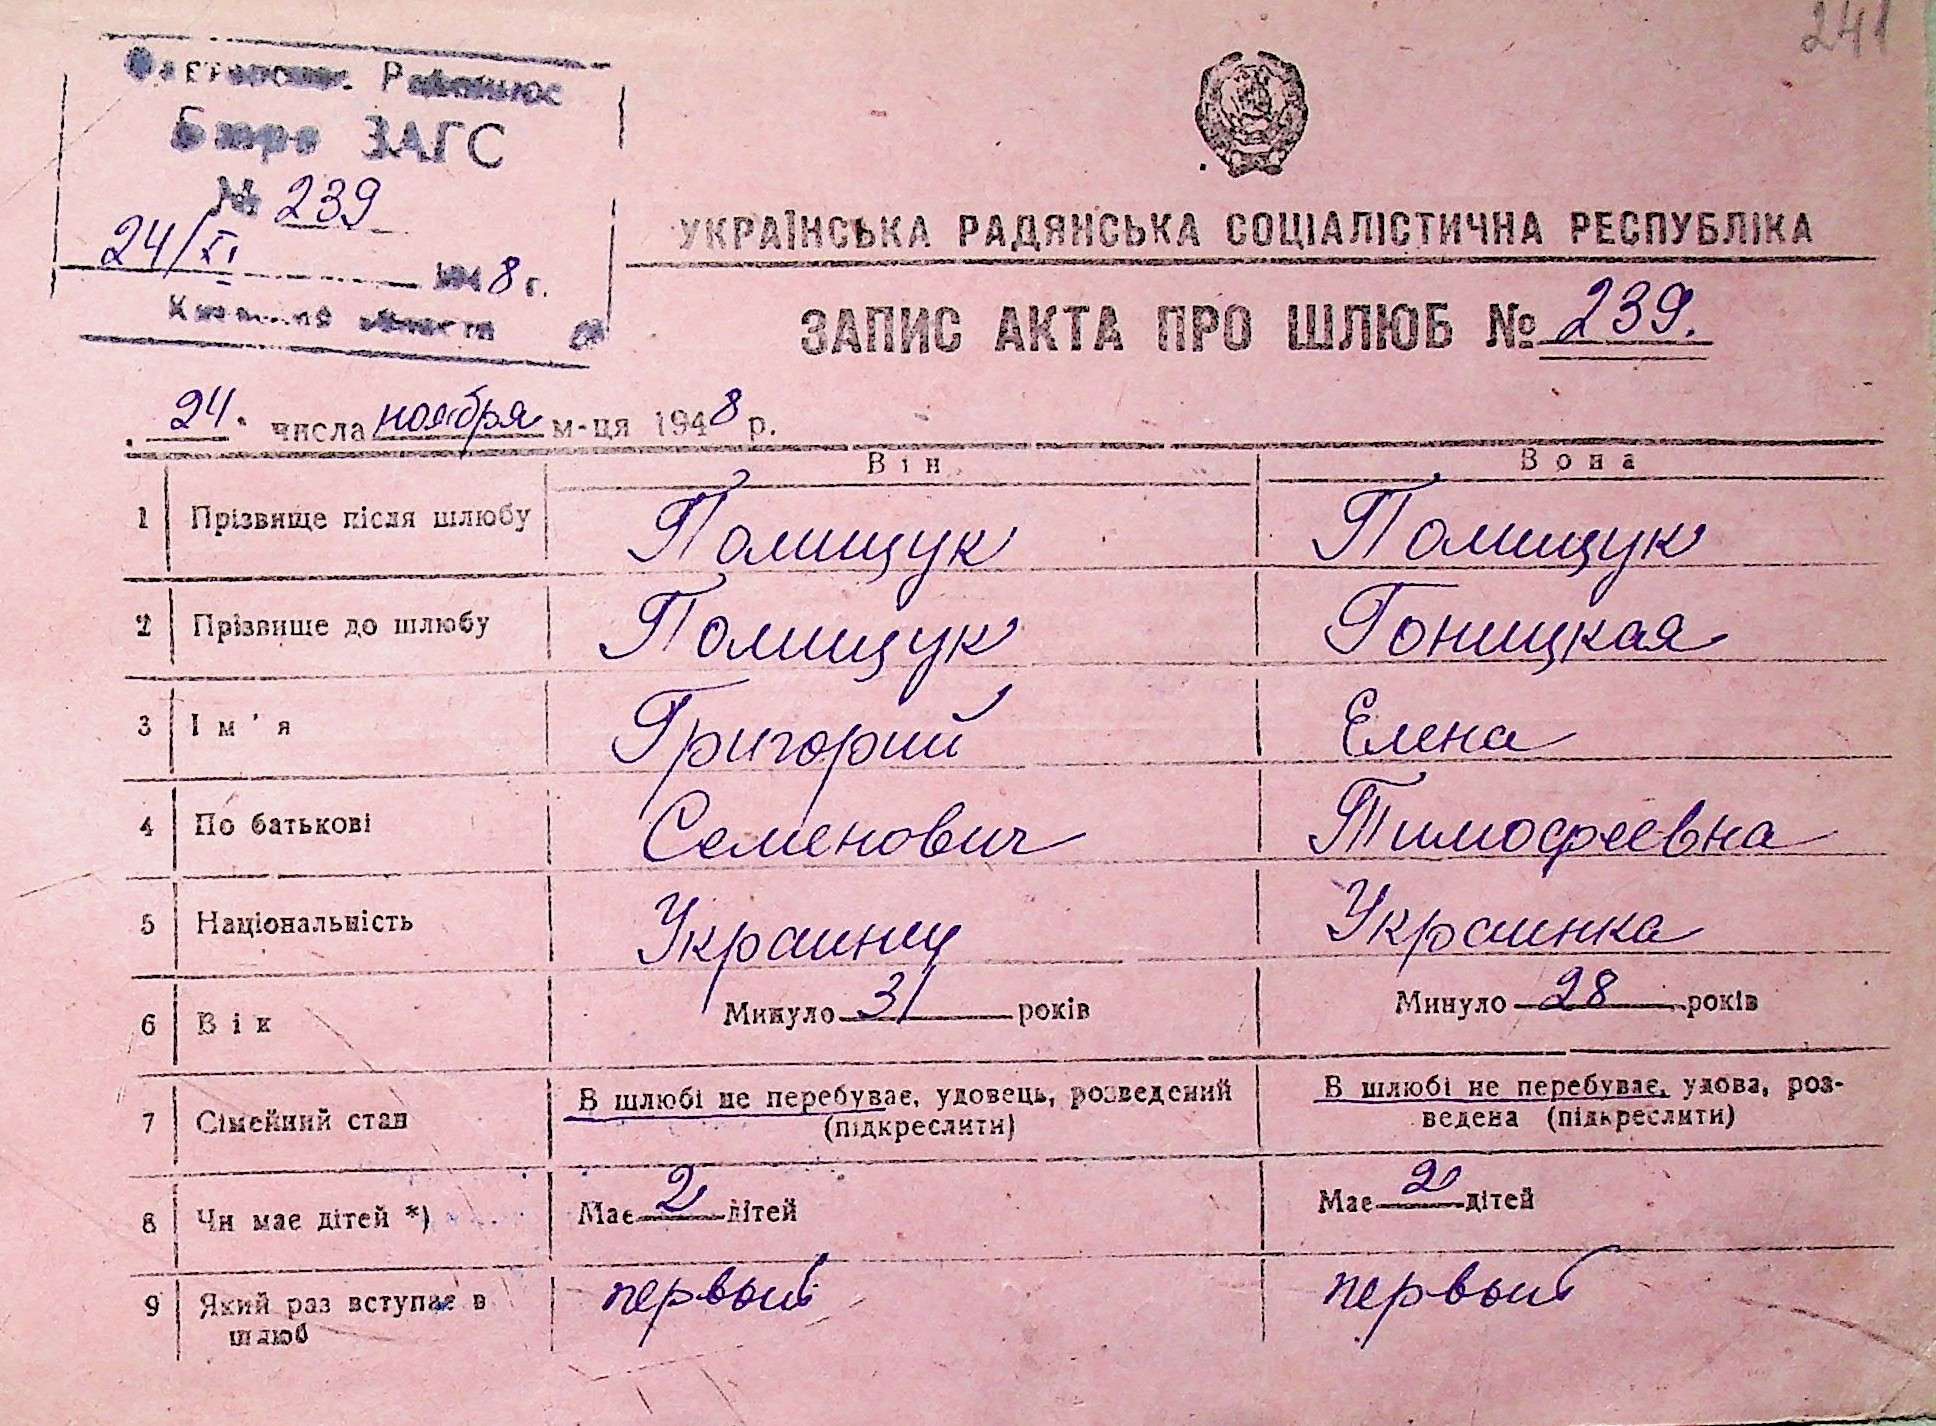 241
Бюро ЗАГС
№ 239
24/XI 1948 г.
области
УКРАЇНСЬКА РАДЯНСЬКА СОЦІАЛІСТИЧНА РЕСПУБЛІКА
ЗАПИС АКТА ПРО ШЛЮБ № 239.
24 числа ноября м-ця 1948 р.
Він Вона
1 Прізвище після шлюбу Полищук Полищук
2 Прізвище до шлюбу Полищук Гоницкая
3 Ім'я Григорий Елена
4 По батькові Семенович Тимофеевна
5 Національність Украинец Украинка
6 Вік Минуло 31 років Минуло 28 років
7 Сімейний стан В шлюбі не перебуває, удовець, розведений (підкреслити) В шлюбі не перебуває, удова, роз-
ведена (підкреслити)
8 Чи має дітей *) Має 2 дітей Має 2 дітей
9 Який раз вступає в шлюб первый первый